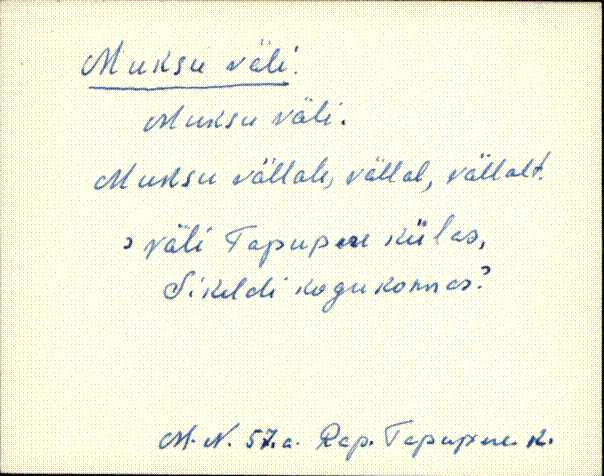 Muksu väli.
Muksu väli.
Muksu vällale, vällal, vällalt.
? väli Tapupere külas,
Sikeldi kogukonnas?
M. N. 57.a. Rap. Tapupere k.